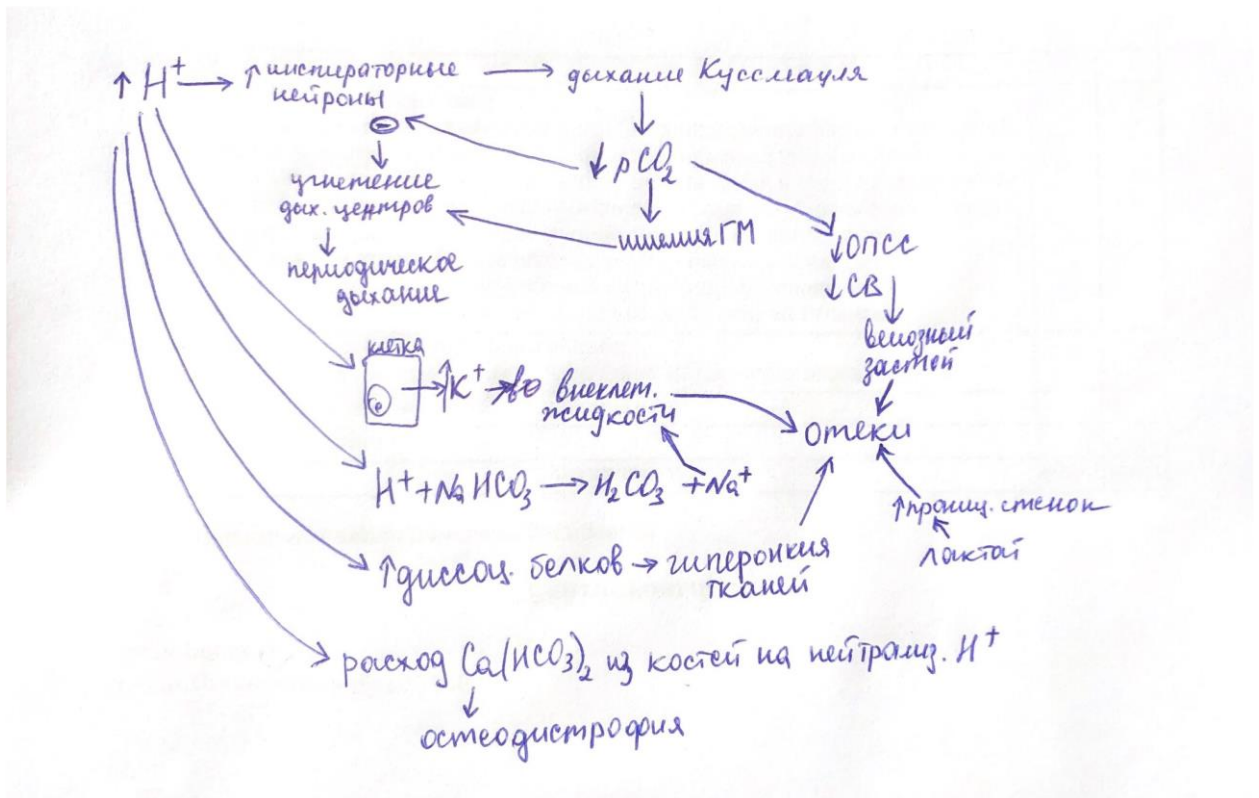 ↑ H⁺ → ↑ инспираторные → дыхание Куссмауля
нейроны
⊖
↓ pCO₂
угнетение
дых. центров
ишемия ГМ
↓ОПСС
↓СВ
периодическое
дыхание
венозный
застой
клетка
→ ↑K⁺ → во внеклет.
жидкости
отеки
H⁺ + NaHCO₃ → H₂CO₃ + Na⁺
↑прониц. стенок
лактат
↑диссоц. белков → гиперонкия
тканей
расход Ca(HCO₃)₂ из костей на нейтрализ. H⁺
остеодистрофия